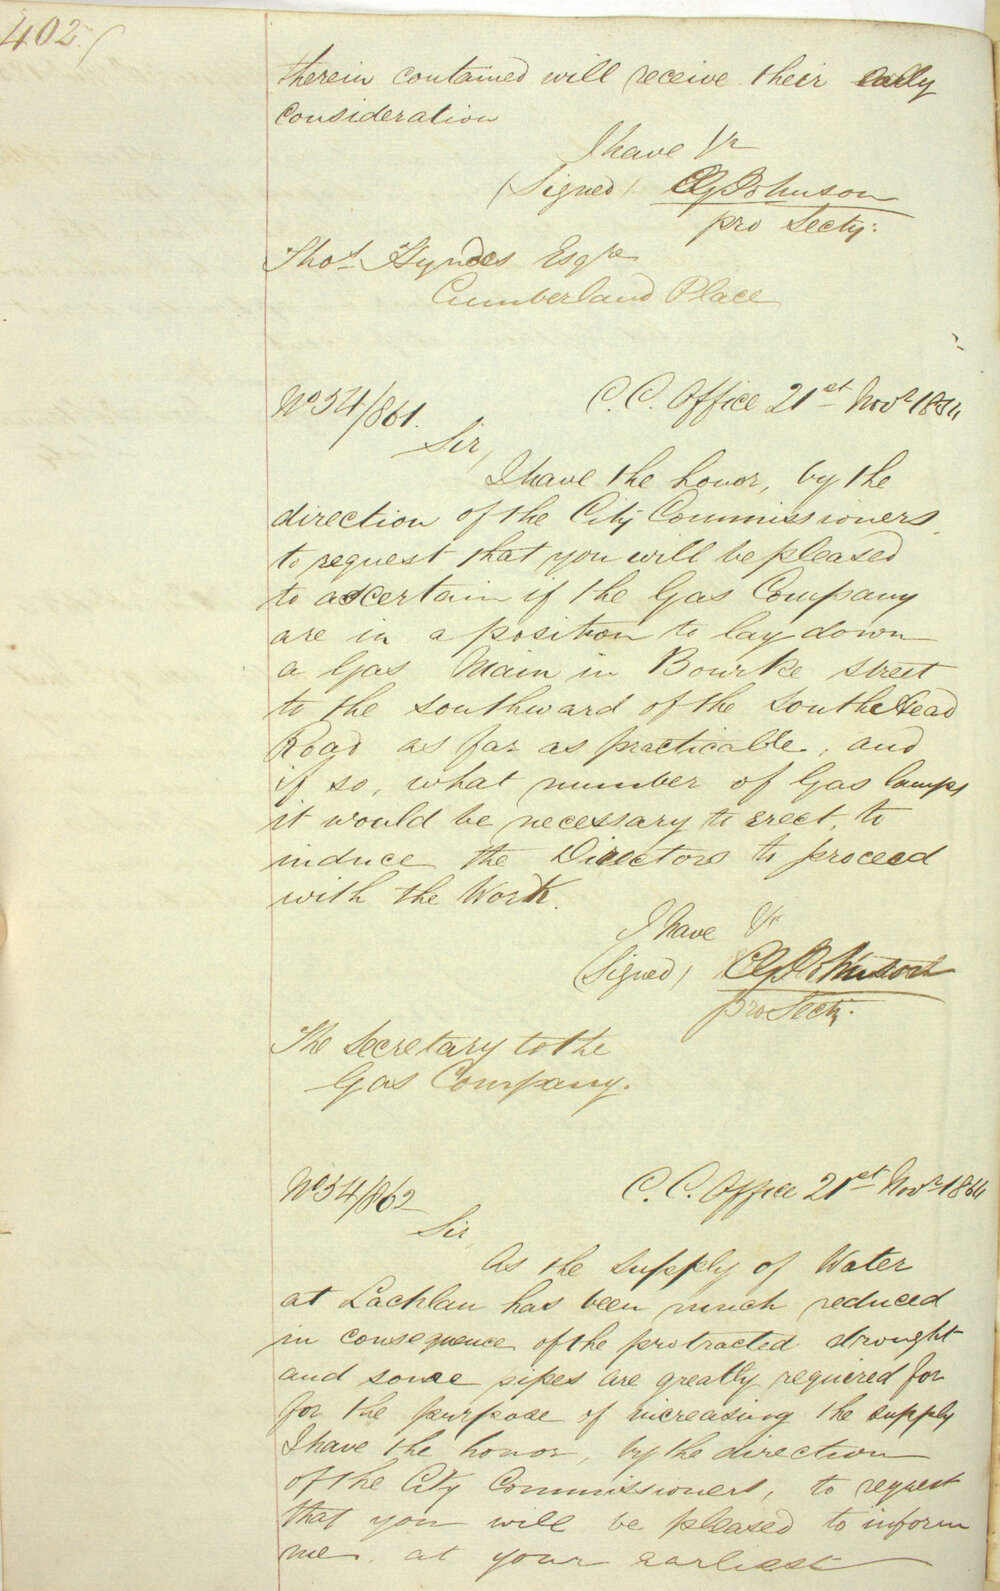 402
therein contained will receive their early
consideration
I have &c
(Signed) C G Johnson
pro Secty:
Thos. Hyndes Esqre
Cumberland Place
No 54/861.
C. C. Office 21st Novr 1854
Sir,
I have the honor, by the
direction of the City Commissioners,
to request that you will be pleased
to ascertain if the Gas Company
are in a position to lay down
a Gas Main in Bourke Street
to the Southward of the South Head
Road as far as practicable, and
if so, what number of Gas lamps
it would be necessary to erect, to
induce the Directors to proceed
with the Work.
I have &c
(Signed) C G Johnson
pro Secty.
The Secretary to the
Gas Company.
No 54/862
C. C. Office 21st Novr 1854
Sir,
As the supply of Water
at Lachlan has been much reduced
in consequence of the protracted drought
and some pipes are greatly required for
for the purpose of increasing the supply
I have the honor, by the direction
of the City Commissioners, to request
that you will be pleased to inform
me, at your earliest